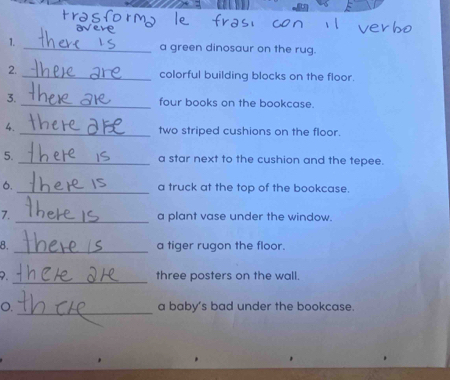 trasforma le frasi con il verbo
avere
1. there is a green dinosaur on the rug.
2. there are colorful building blocks on the floor.
3. there are four books on the bookcase.
4. there are two striped cushions on the floor.
5. there is a star next to the cushion and the tepee.
6. there is a truck at the top of the bookcase.
7. there is a plant vase under the window.
8. there is a tiger rugon the floor.
9. there are three posters on the wall.
0. there a baby's bad under the bookcase.